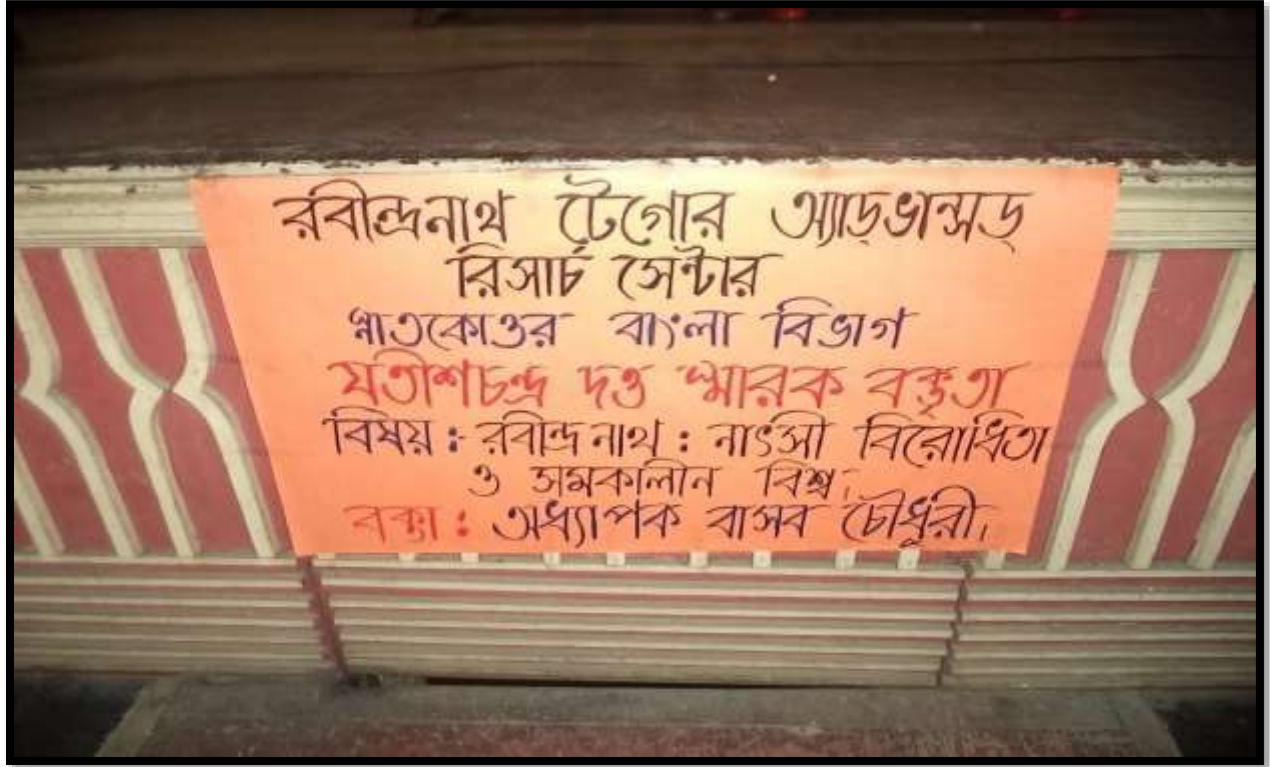 রবীন্দ্রনাথ টেগোর অ্যাড্ভান্সড্
রিসার্চ সেন্টার
স্নাতকোত্তর বাংলা বিভাগ
যতীশচন্দ্র দত্ত স্মারক বক্তৃতা
বিষয় : রবীন্দ্রনাথ : নাৎসী বিরোধিতা
ও সমকালীন বিশ্ব।
বক্তা : অধ্যাপক বাসব চৌধুরী।